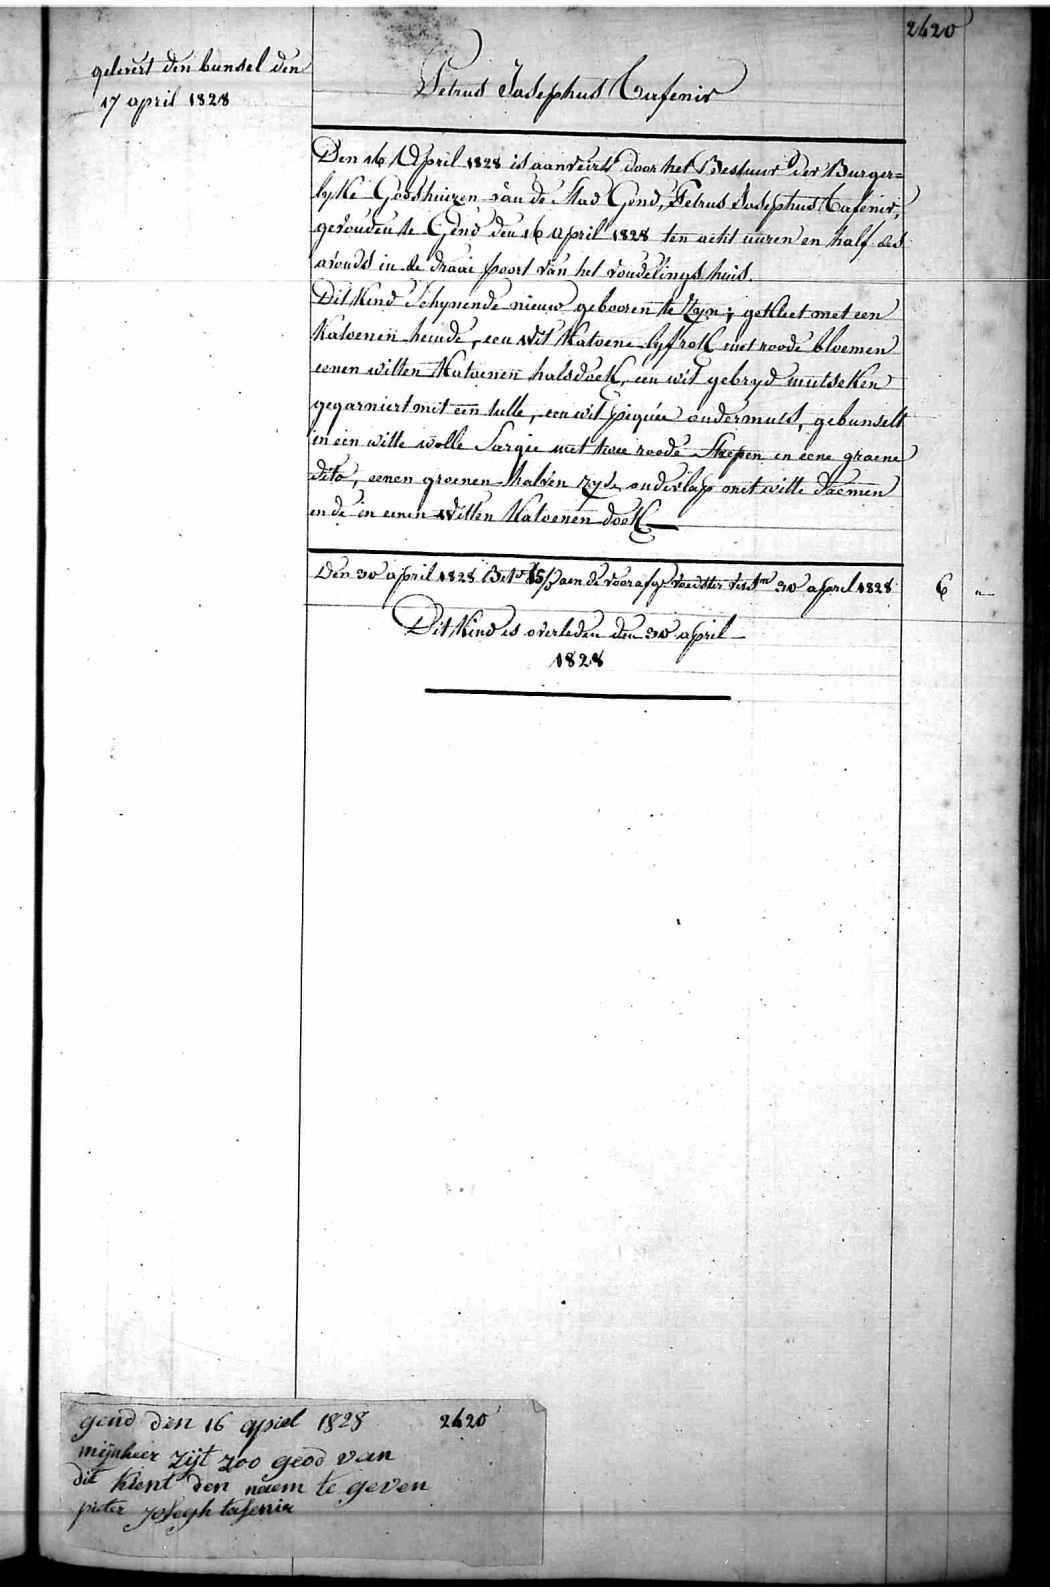 2620
gelevert den bunsel den
17 april 1828
Petrus Josephus Tafenir
Den 16 April 1828 is aanveirt door het Bestuur der Burger=
lyke Godshuizen van de Stad Gend, Petrus Josephus Tafenir,
gevonden te Gend den 16 april 1828 ten acht uuren en half des
avonds in de draai poort van het vondelings huis.
Dit Kind Schynende nieuw gebooren te Zyn; gekleet met een
Katoenen hemde, een wit Katoene lyfrok met roode bloemen
eenen witten Katoenen halsdoek, een wit gebryd mutseken
gegarniert met een tulle, een wit piquée ondermuts, gebunselt
in een witte wolle Sargie met twee roode Strepen en eene groene
dito, eenen groenen halven zyde onderlap met witte
ende in eenen witten Katoenen doek
Den 30 april 1828 aen de voedster 30 april 1828 6 "
Dit Kind is overleden den 30 april
1828
gend den 16 apriel 1828 2620
mijnheer zijt zoo geod van
dit kient den naem te geven
pieter josegh tafenir